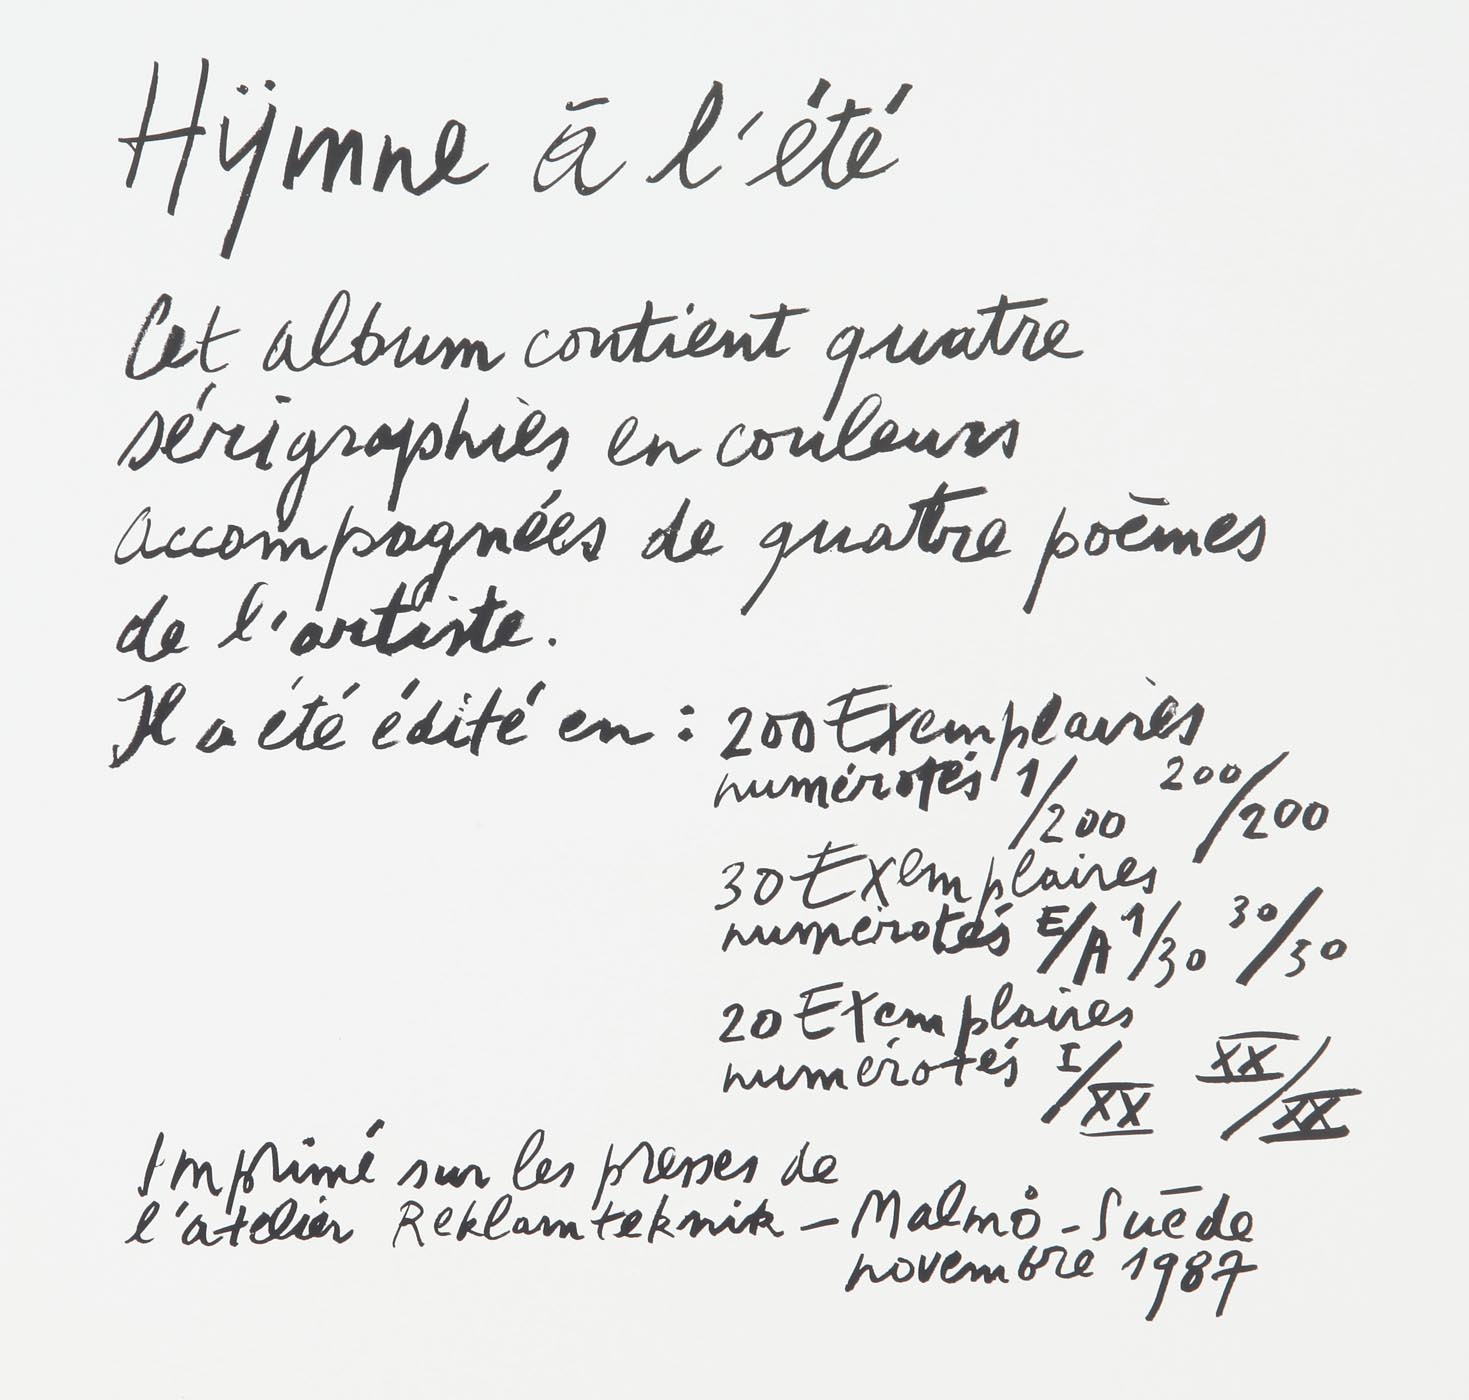 Hÿmne ā l'été
Cet album contient quatre
sérigraphies en couleurs
accompagnées de quatre poēmes
de l'artiste.
Il a été édité en : 200 Exemplaires
numérotés 1/200 200/200
30 Exemplaires
numérotés E/A 1/30 30/30
20 Exemplaires
numérotés I/XX XX/XX
Imprimé sur les presses de
l'atelier Reklamteknik – Malmö - Suēde
novembre 1987